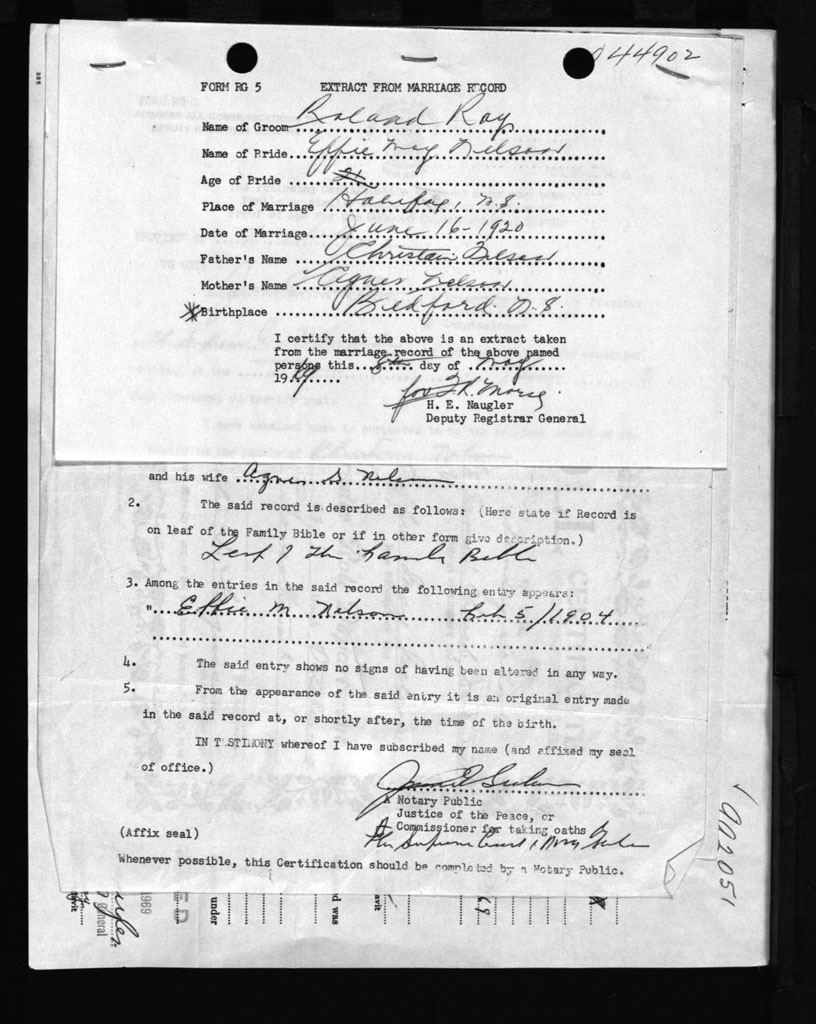 044902
FORM RG 5 EXTRACT FROM MARRIAGE RECORD
Name of Groom Roland Ray
Name of Bride Effie May Nelson
Age of Bride 21
Place of Marriage Halifax, N.S.
Date of Marriage June 16-1920
Father's Name Christain Nelson
Mother's Name Agnes Nelson
Birthplace Bedford N.S.
I certify that the above is an extract taken
from the marriage record of the above named
persons this 8th day of May
1969
for F.R. Morse
H. E. Naugler
Deputy Registrar General
and his wife Agnes S Nelson
2. The said record is described as follows: (Here state if Record is
on leaf of the Family Bible or if in other form give description.)
Leaf of the Family Bible
3. Among the entries in the said record the following entry appears:
" Effie M. Nelson Feb 5/1904
4. The said entry shows no signs of having been altered in any way.
5. From the appearance of the said entry it is an original entry made
in the said record at, or shortly after, the time of the birth.
IN TESTIMONY whereof I have subscribed my name (and affixed my seal
of office.)
A Notary Public
Justice of the Peace, or
A Commissioner for taking oaths
(Affix seal)
the Supreme Court of Nova Scotia
Whenever possible, this Certification should be completed by a Notary Public.
002051
General
1969
under
d was
avit
68